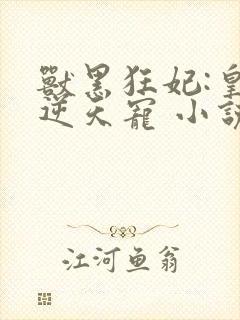 獸黑狂妃:皇
逆天寵 小說
江河鱼翁